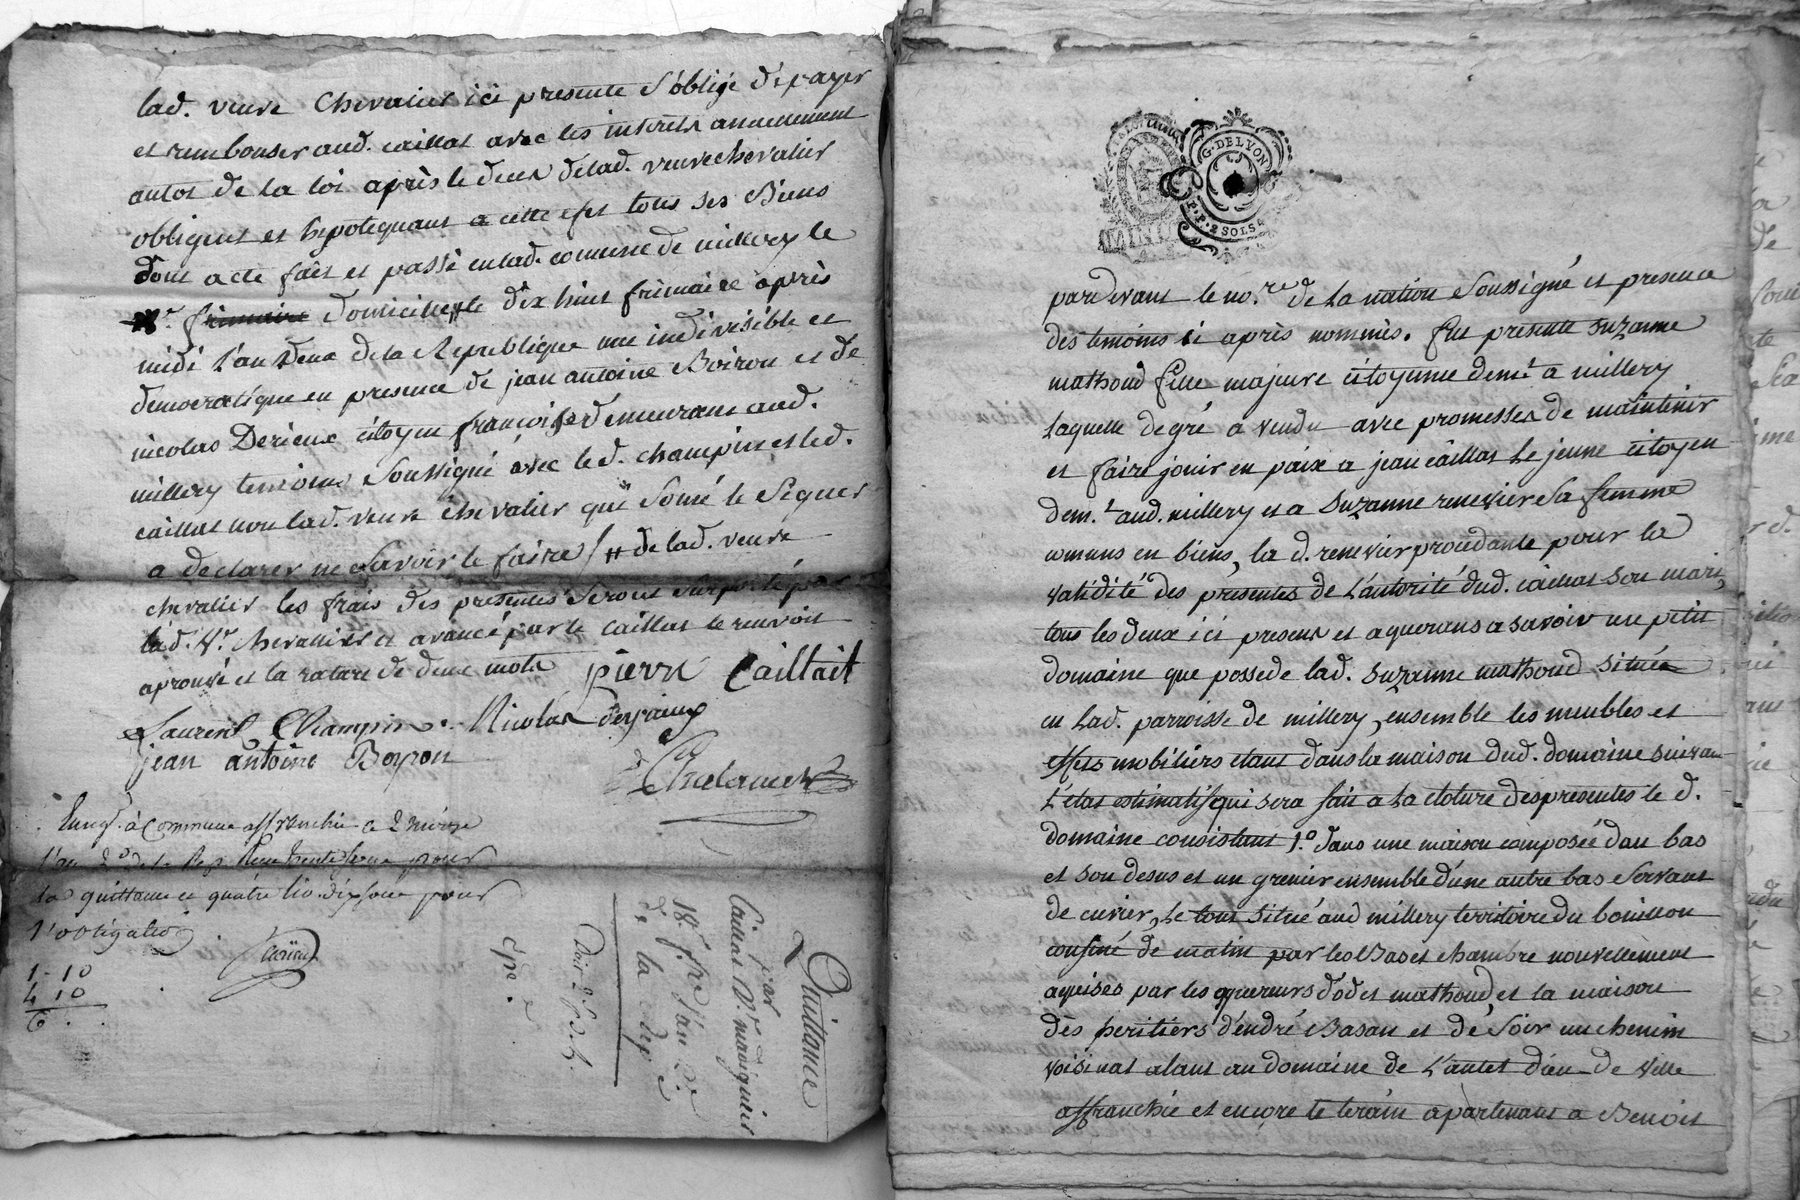 lad. veuve Chevalier ici presente S'oblige de payer
et rembourser aud. caillat avec les interets annuellement
autot de la loi après le deces delad. veuve chevalier
obligent et hipotequant a cette efet tous ses Biens
dont acte fait et passé en lad. comune de millery le
frimaire domicille le dix huit frimaire après
midi l'an deux de la Republique une indivisible et
democratique en presence de jean antoine Boiron et de
nicolas Derieux citoyen françois demeurant aud.
millery temoins Soussigné avec led. champin et led.
caillat non lad. veuve chevalier qui Somé le Signer
a declarer ne Savoir le faire / # de lad. veuve
chevalier les frais des presentes Seront Suporté par
lad. Ve. chevallier et avancé par le caillat le renvoit
aprouvé et la rature de deux mots pierre Caillait
Laurent Champin. Nicolas
jean antoine Boyron
Enregt. à Commune affranchie ce 2 nivose
l'an 2e de la Rep. pour
la quittance et quatre liv. dix sous pour
l'obligation
1 - 10
4 10
6 . .
Quittance
pour
Caillat
18 fre l'an 2e
de la Rep.
G. DELYON
2 SOLS
pardevant le no.re de la nation Soussigné et presence
des temoins ci après nommés. fut presente Suzanne
mathoud fille majeure citoyenne demt a millery
Laquelle de gré a vendu avec promesses de maintenir
et faire jouir en paix a jean câillat le jeune citoyen
dem.t aud. millery et a Suzanne renevier Sa femme
comuns en biens, la d. renevier procedante pour la
validité des presentes de L'autorité dud. câillat son mari,
tous les deux ici presens et aquerans a savoir un petit
domaine que possede lad. Suzanne mathoud située
en lad. parroisse de millery, ensemble les meubles et
effets mobiliers etant dans la maison dud. domaine suivant
L'etat estimatif qui sera fait a la cloture des presentes le d.
domaine consistant 1.o dans une maison composée d'un bas
et son desus et un grenier ensemble d'une autre bas Servant
de cuvier, le tout situé aud millery territoire du bouisson
confiné de matin par les Bas et chambre nouvellement
aquises par les aquereurs d'odet mathoud et la maison
dès heritiers d'endré Basan et de Soir un chemin
voisinat alant au domaine de L'autel dieu de Ville
affranchie et encore le terain apartenant a Benoit